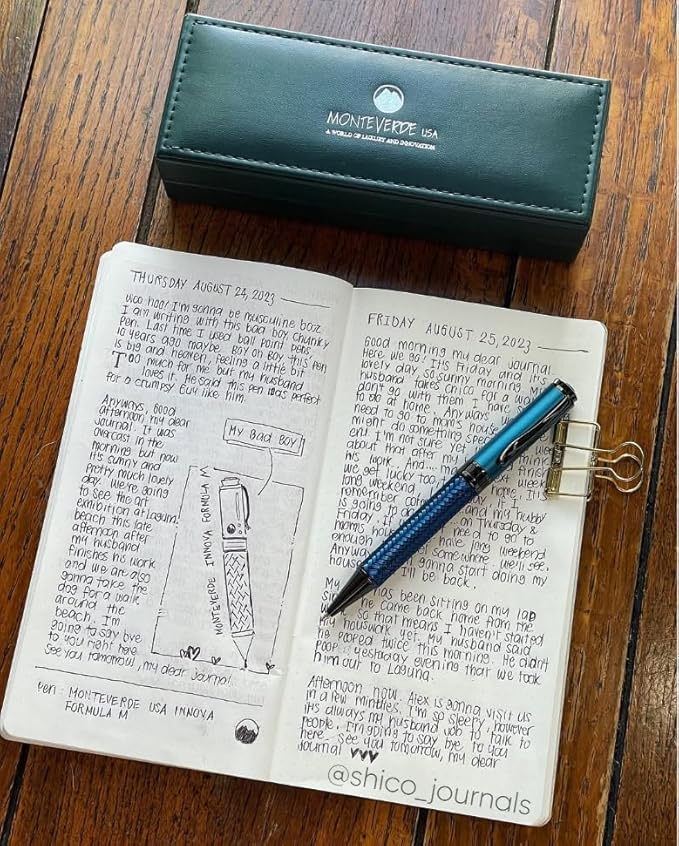 MONTEVERDE USA
A WORLD OF LUXURY AND INNOVATION
THURSDAY AUGUST 24, 2023
WOO HOO! I'm gonna be masculine bozz
I am writing with this bad boy chunky
pen. Last time I used ball point pens
10 years ago maybe. Boy oh boy this pen
is big and heaven, feeling a little bit
Too much for me but my husband
loves it. He said this pen was perfect
for a grumpy guy like him.
Anyways, Good
afternoon my dear
journal. It was
overcast in the
morning but now
it's sunny and
pretty much lovely
day. We're going
to see the art
exhibition at Laguna
beach this late
afternoon after
my husband
finishes his work
and we are also
gonna take the
dog for a walk
around the
beach. I'm
going to say bye
to you right here
See you tomorrow, my dear journal.
My Bad Boy
MONTEVERDE INNOVA FORMULA M
Pen: MONTEVERDE USA INNOVA
FORMULA M
FRIDAY AUGUST 25, 2023
Good morning my dear journal
Here we go! It's Friday and it's
lovely day, so sunny morning. My
husband takes Chico for a wa
don't go with them I have so
to do at home. Anyways
need to go to mom's house
might do something spec week
end. I'm not sure yet think
about that after finish
his work. And.... m
we get lucky too home. It's
long weekend
remember co y, if I
is going to and my hubby
Friday. If on Thursday &
mom's hou need to go to
enough have long weekend
Anyway somewhere. We'll see.
hous gonna start doing my
I'll be back.
My has been sitting on my lap
sin he came back home from the
w so that means I haven't started
my houswork yet. My husband said
he pooped twice this morning. He didn't
poop yesterday evening that we took
him out to Laguna.
Afternoon now. Alex is gonna visit us
in a few mintues. I'm so sleepy, however
it's always my husband job to talk to
people. I'm going to say bye to you
here. See you tomorrow, my dear
journal
@shico_journals